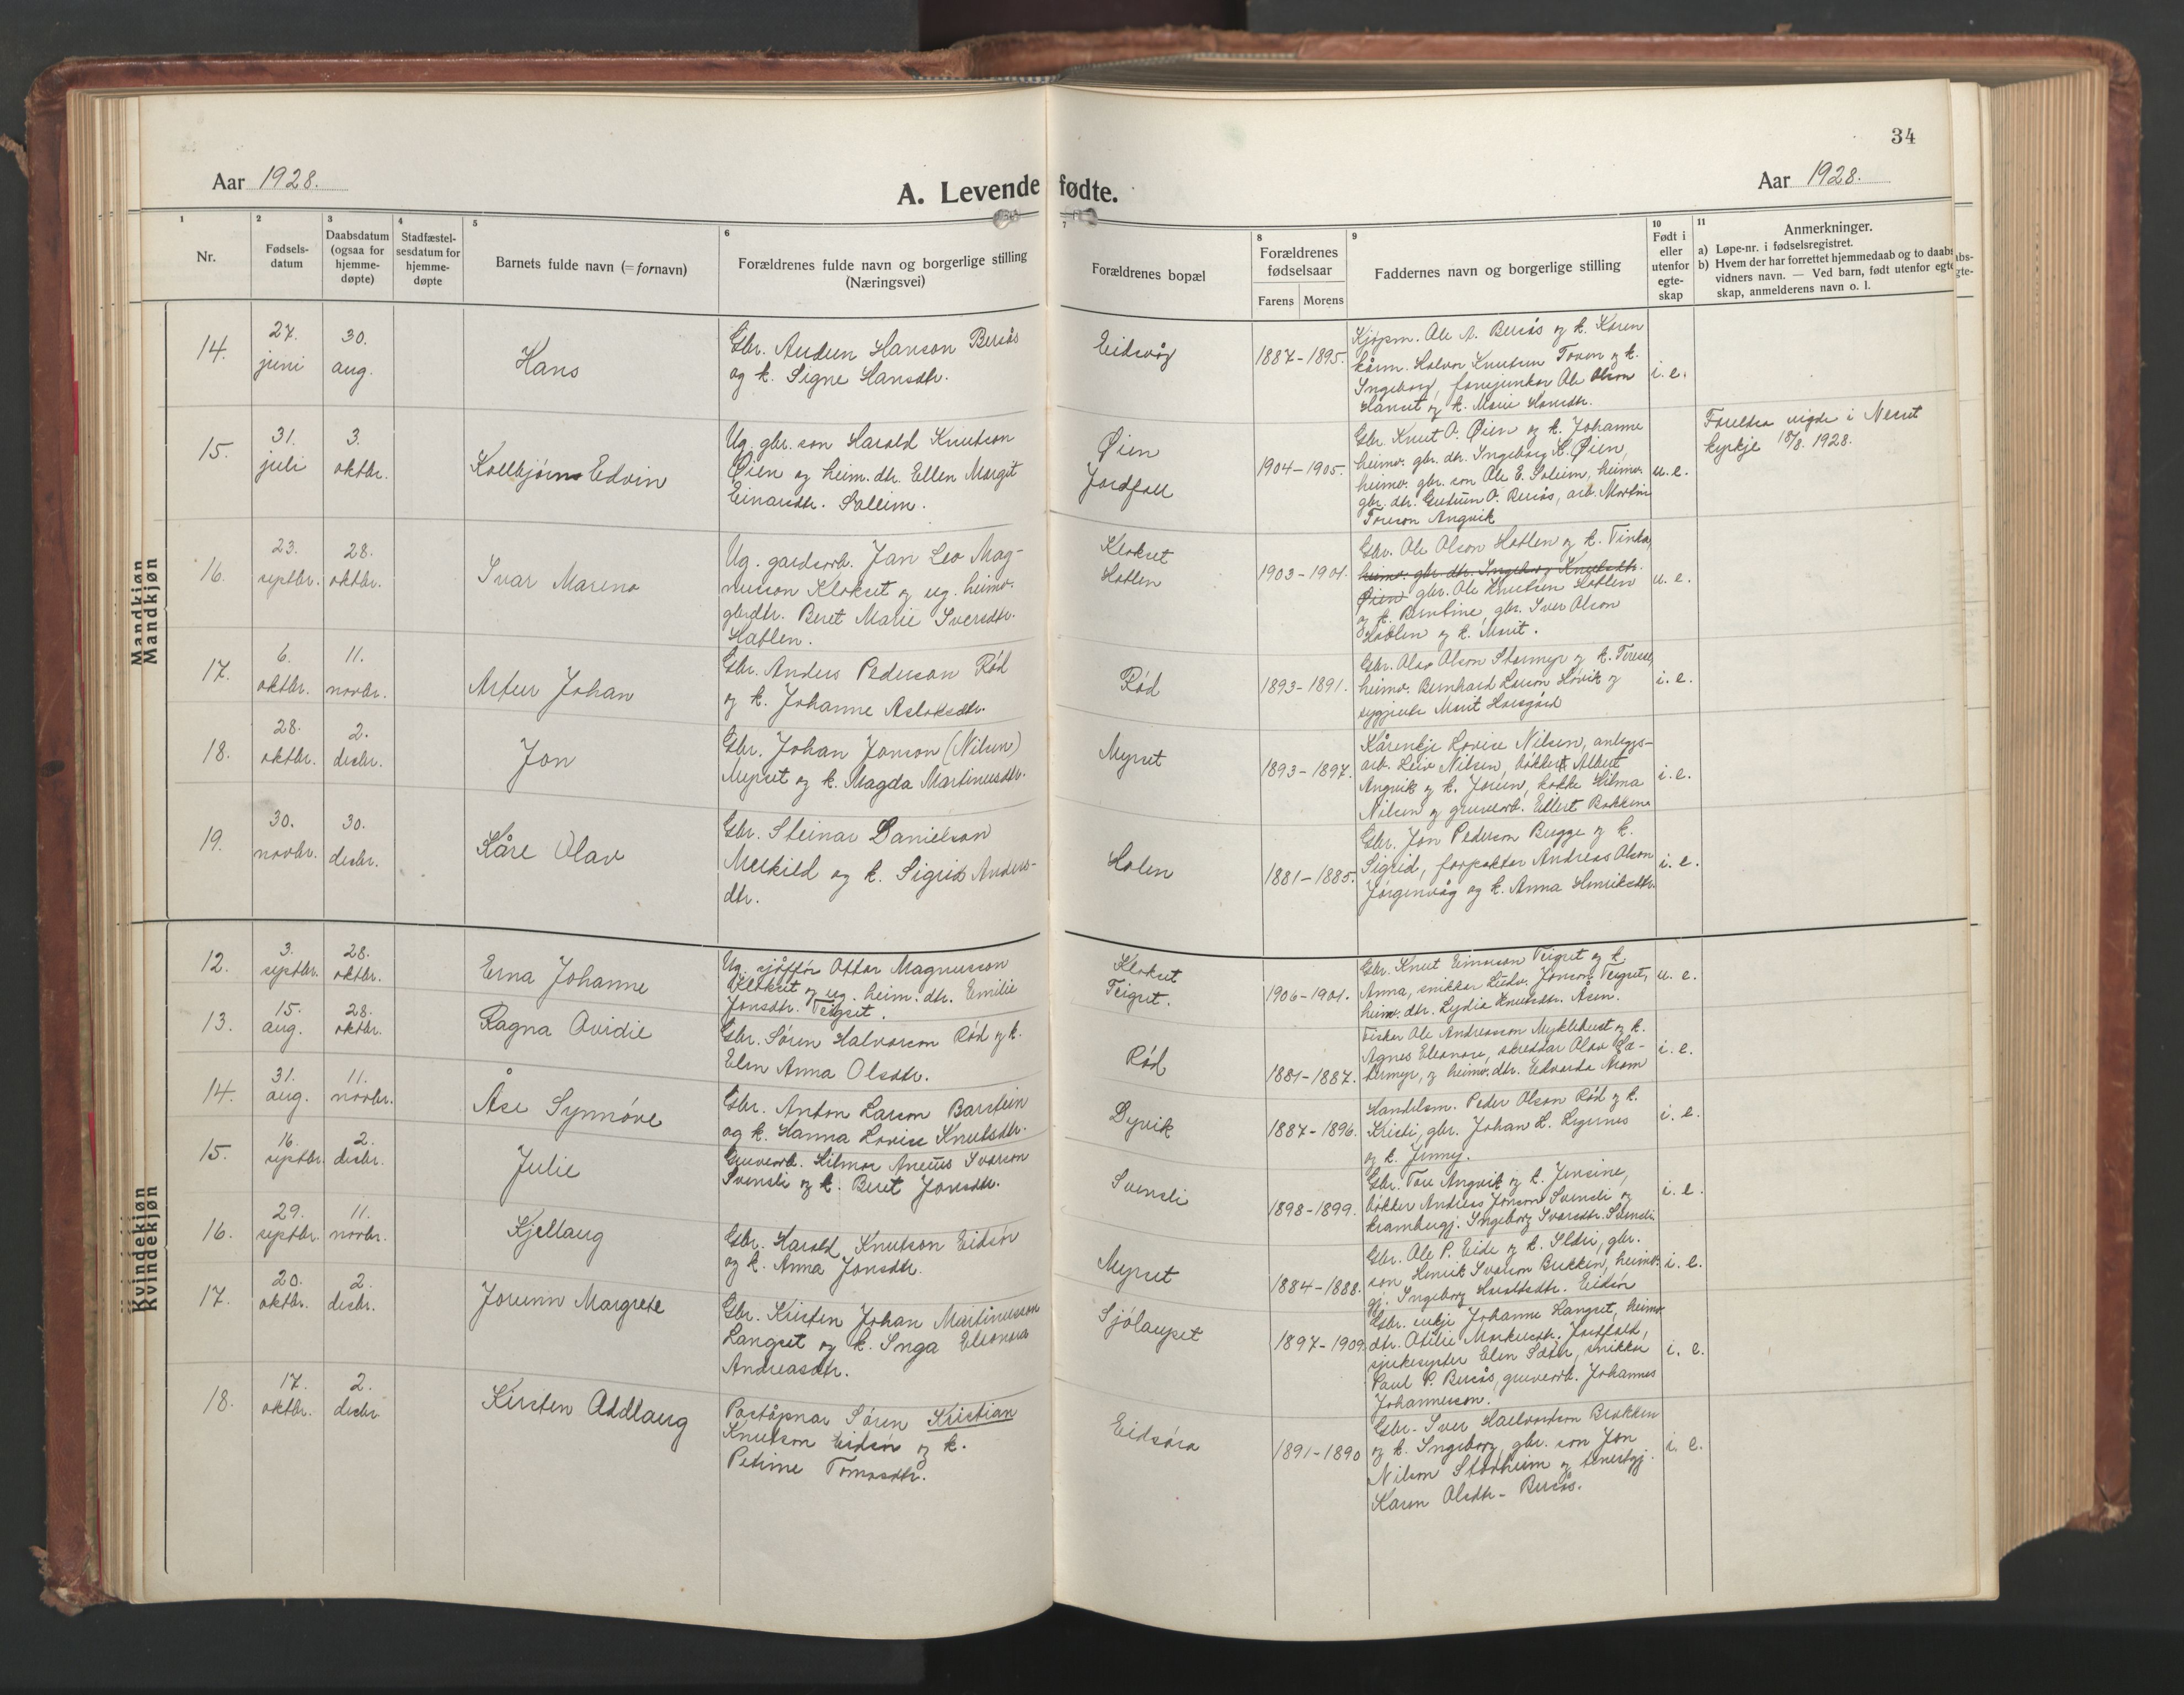 34
Aar 1928.
A. Levende fødte.
Aar 1928.
1
Nr.
2
Fødsels-
datum
3
Daabsdatum
(ogsaa for
hjemme-
døpte)
4
Stadfæstel-
sesdatum for
hjemme-
døpte
5
Barnets fulde navn (= fornavn)
6
Forældrenes fulde navn og borgerlige stilling
(Næringsvei)
7
Forældrenes bopæl
8
Forældrenes
fødselsaar
Farens
Morens
9
Faddernes navn og borgerlige stilling
10
Født i
eller
utenfor
egte-
skap
11
Anmerkninger.
a) Løpe-nr. i fødselsregistret.
b) Hvem der har forrettet hjemmedaab og to daabs-
vidners navn. — Ved barn, født utenfor egte-
skap, anmelderens navn o. l.
Mandkjøn
Mandkjøn
14.
27.
juni
30.
aug.
Hans
Gbr. Audun Hanson Bersås
og k. Signe Hansdtr.
Eidsvåg
1887 - 1895.
Kjøpm. Ole A. Bersås og k. Karen
kårm. Halvor Knutson Toven og k.
Ingeborg, Ole Olson
Hanset og k. Marie Hansdtr.
i. e.
15.
31.
juli
3.
oktbr.
Kolbjørn Edvin
Ug. gbr. son Harald Knutson
Øien og heim. dtr. Ellen Margit
Einarsdtr. Solleim.
Øien
Jordfall
1904 - 1905.
Gbr. Knut O. Øien og k. Johanne
heimv. gbr. dtr. Ingeborg K. Øien,
heimv. gbr. son Ole E. Soleim, heimv.
gbr. dtr. Gudrun O. Bersås, arb. Martin
Toreson Angvik
u. e.
Foreldra vigde i Nesset
kyrkje 18/8. 1928.
16.
23.
septbr.
28.
oktbr.
Ivar Mareno
Ug. gardsarb. Jan Leo Mag-
nusson Klokset og ug. heimv.
gbrdtr. Beret Marie Iversdtr.
Hatlen.
Klokset
Hatlen
1903 - 1901.
Gbr. Ole Olson Hatlen og k. Tinka,
heimv. gbr. dtr. Ingeborg Knutsdtr.
Øien gbr. Ole Knutson Hatlen
og k. Berntine, gbr. Iver Olson
Hatlen og k. Marit.
u. e.
17.
6.
oktbr.
11.
novbr.
Artur Johan
Gbr. Anders Pederson Rød
og k. Johanne Aslaksdtr.
Rød
1893 - 1891.
Gbr. Olav Olson Stormyr og k. Terese,
heimv. Bernhard Larson Hovik og
Marit Horsgård
i. e.
18.
28.
oktbr.
2.
desbr.
Jon
Gbr. Johan Jonson (Nilsen)
Myrset og k. Magda Martinusdtr.
Myrset
1893 - 1897.
Kårenkje Lovise Nilsen, anleggs-
arb. Leiv Nilsen, bøkker Albert
Angvik og k. Jorun, kokke Hilma
Nilsen og gruvearb. Ellert Bakken
i. e.
19.
30.
novbr.
30.
desbr.
Kåre Olav
Gbr. Steinar Danielson
Meekild og k. Sigrid Anders-
dtr.
Holen
1881 - 1885.
Gbr. Jon Pederson Bugge og k.
Sigrid, forpaktar Andreas Olson
Jørgenvåg og k. Anna Henriksdtr.
i. e.
Kvindekjøn
Kvindekjøn
12.
3.
septbr.
28.
oktbr.
Erna Johanne
Ug. sjåffør Ottar Magnusson
Klokset og ug. heim. dtr. Emilie
Jonsdtr. Teigset.
Klokset
Teigset.
1906 - 1901.
Gbr. Knut Einarson Teigset og k.
Anna, snikkar Ludv. Jonson Teigset,
heimv. dtr. Lydia Knutsdtr. Åsen.
u. e.
13.
15.
aug.
28.
oktbr.
Ragna Ovidie
Gbr. Søren Halvorson Rød og k.
Elen Anna Olsdtr.
Rød
1881 - 1887.
Fisker Ole Andreasson Myklebust og k.
Agnes Eleonore, skreddar Olav Sæ-
termyr, og heimv. dtr. Edvarda Moen
i. e.
14.
31.
aug.
11.
novbr.
Åse Synnøve
Gbr. Anton Larson Barstein
og k. Hanna Lovise Knutsdtr.
Dyvik
1887 - 1896.
Handelsm. Peder Olson Rød og k.
Kristi, gbr. Johan L. Lysnes
og k. Jenny.
i. e.
15.
16.
septbr.
2.
desbr.
Julie
Gruvearb. Hilmar Aneus Ivarson
Svensli og k. Beret Jonsdtr.
Svensli
1898 - 1899.
Gbr. Tore Angvik og k. Jensine,
bøkker Andreas Jonson Svensli og
krambugj. Ingeborg Ivarsdtr. Svensli
i. e.
16.
29.
septbr.
11.
novbr.
Kjellaug
Gbr. Harald Knutson Eidsør
og k. Anna Jonsdtr.
Myrset
1884 - 1888.
Gbr. Ole P. Eide og k. Sldri, gbr.
son Henrik Ivarson Brekken, heimv.
gj. Ingeborg Haraldsdtr. Eidsør
i. e.
17.
20.
oktbr.
2.
desbr.
Jorunn Margrete
Gbr. Kristen Johan Martinusson
Langset og k. Inga Eleonora
Andreasdtr.
Sjølaupset
1897 - 1909.
Gbr. enkje Johanne Langset, heimv.
dtr. Otilie Markusdtr. Jordfald,
sjukesyster Elen Sæter, snikkar
Paul P. Bersås, gruvearb. Johannes
Johannesson.
i. e.
18.
17.
oktbr.
2.
desbr
Kirsten Oddlaug
Postopnar Søren Kristian
Knutson Eidsør og k.
Petrine Tomasdtr.
Eidsøra
1891 - 1890
Gbr. Iver Halvorson Brekken
og k. Ingeborg, gbr. son Jon
Nilson Stadheim og tenestgj.
Karen Olsdtr. Bersås.
i. e.